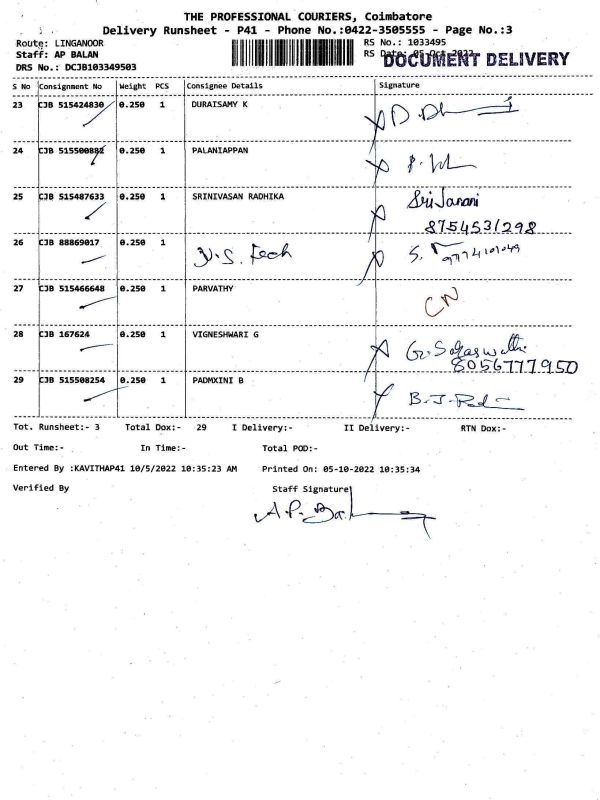 THE PROFESSIONAL COURIERS, Coimbatore
Delivery Runsheet - P41 - Phone No.:0422-3505555 - Page No.:3
Route: LINGANOOR RS No.: 1033495
Staff: AP BALAN RS Date: 05-Oct-2022
DOCUMENT DELIVERY
DRS No.: DCJB103349503
S No Consignment No Weight PCS Consignee Details Signature
23 CJB 515424830 0.250 1 DURAISAMY K
24 CJB 515500882 0.250 1 PALANIAPPAN
25 CJB 515487633 0.250 1 SRINIVASAN RADHIKA Sri Janani
8754531298
26 CJB 88869017 0.250 1
27 CJB 515466648 0.250 1 PARVATHY CN
28 CJB 167624 0.250 1 VIGNESHWARI G
8056777950
29 CJB 515508254 0.250 1 PADMXINI B
Tot. Runsheet:- 3 Total Dox:- 29 I Delivery:- II Delivery:- RTN Dox:-
Out Time:- In Time:- Total POD:-
Entered By :KAVITHAP41 10/5/2022 10:35:23 AM Printed On: 05-10-2022 10:35:34
Verified By Staff Signature